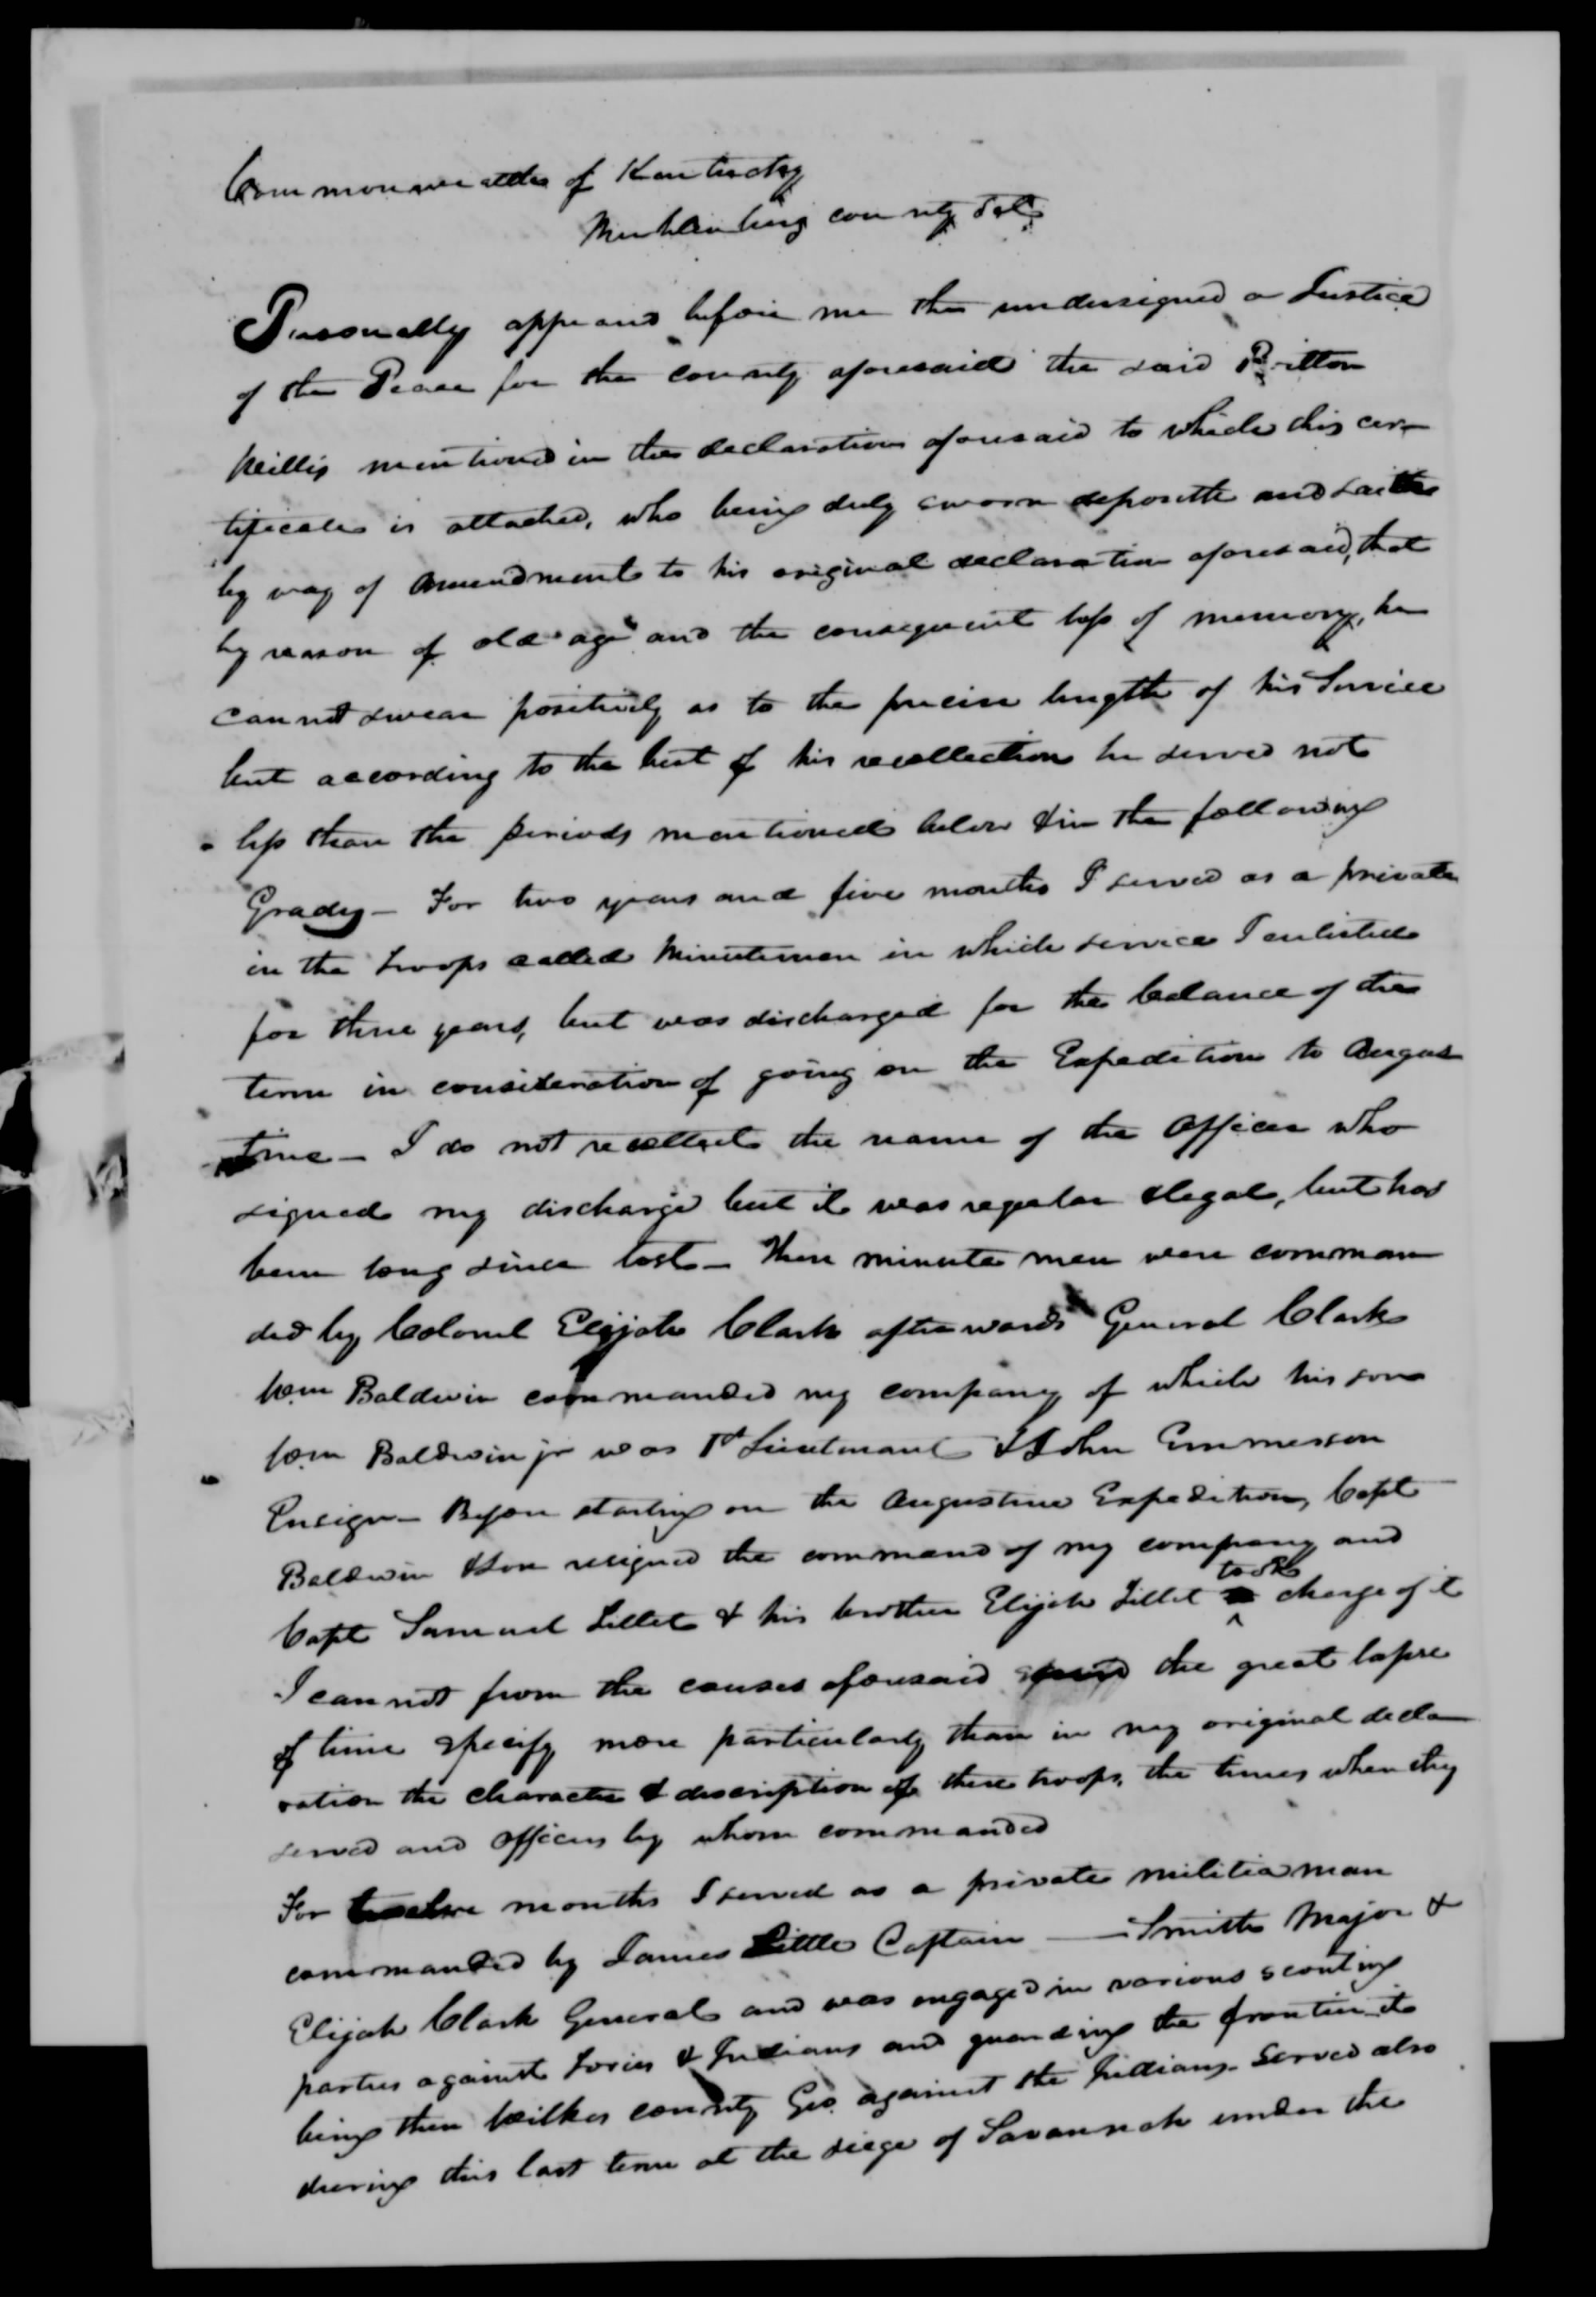 Commonwealth of Kentucky
Muhlenberg county Sct.
Personally appeared before me the undersigned a Justice
of the Peace for the county aforesaid the said Britton
Willis mentioned in the declaration aforesaid to which this cer-
tificate is attached, who being duly sworn deposeth and saith
by way of Amendment to his original declaration aforesaid, that
by reason of old age and the consequent loss of memory, he
cannot swear positively as to the precise length of his Service
but according to the best of his recollection he served not
less than the periods mentioned below & in the following
Grades - For two years and five months I served as a private
in the troops called Minutemen in which service I enlisted
for three years, but was discharged for the balance of the
term in consideration of going on the Expedition to Augus
tine - I do not recollect the name of the Officer who
signed my discharge but it was regular & legal, but has
been long since lost - These minute men were comman
ded by Colonel Elijah Clark afterwards General Clark
Wm Baldwin commanded my company of which his son
Wm Baldwin jr was 1st Lieutenant & John Emmerson
Ensign - Before starting on the Augustine Expedition, Capt
Baldwin & son resigned the command of my company and
Capt Samuel Lillet & his brother Elijah Lillet took charge of it
I cannot from the causes aforesaid the great lapse
of time specify more particularly than in my original decla
ration the character & description of these troops, the times when they
served and officers by whom commanded
For twelve months I served as a private militia man
commanded by James Little Captain — Smith Major &
Elijah Clark General and was engaged in various scouting
parties against Tories & Indians and guarding the frontier it
being then Wilkes county Geo. against the Indians - Served also
during this last term at the siege of Savannah under the